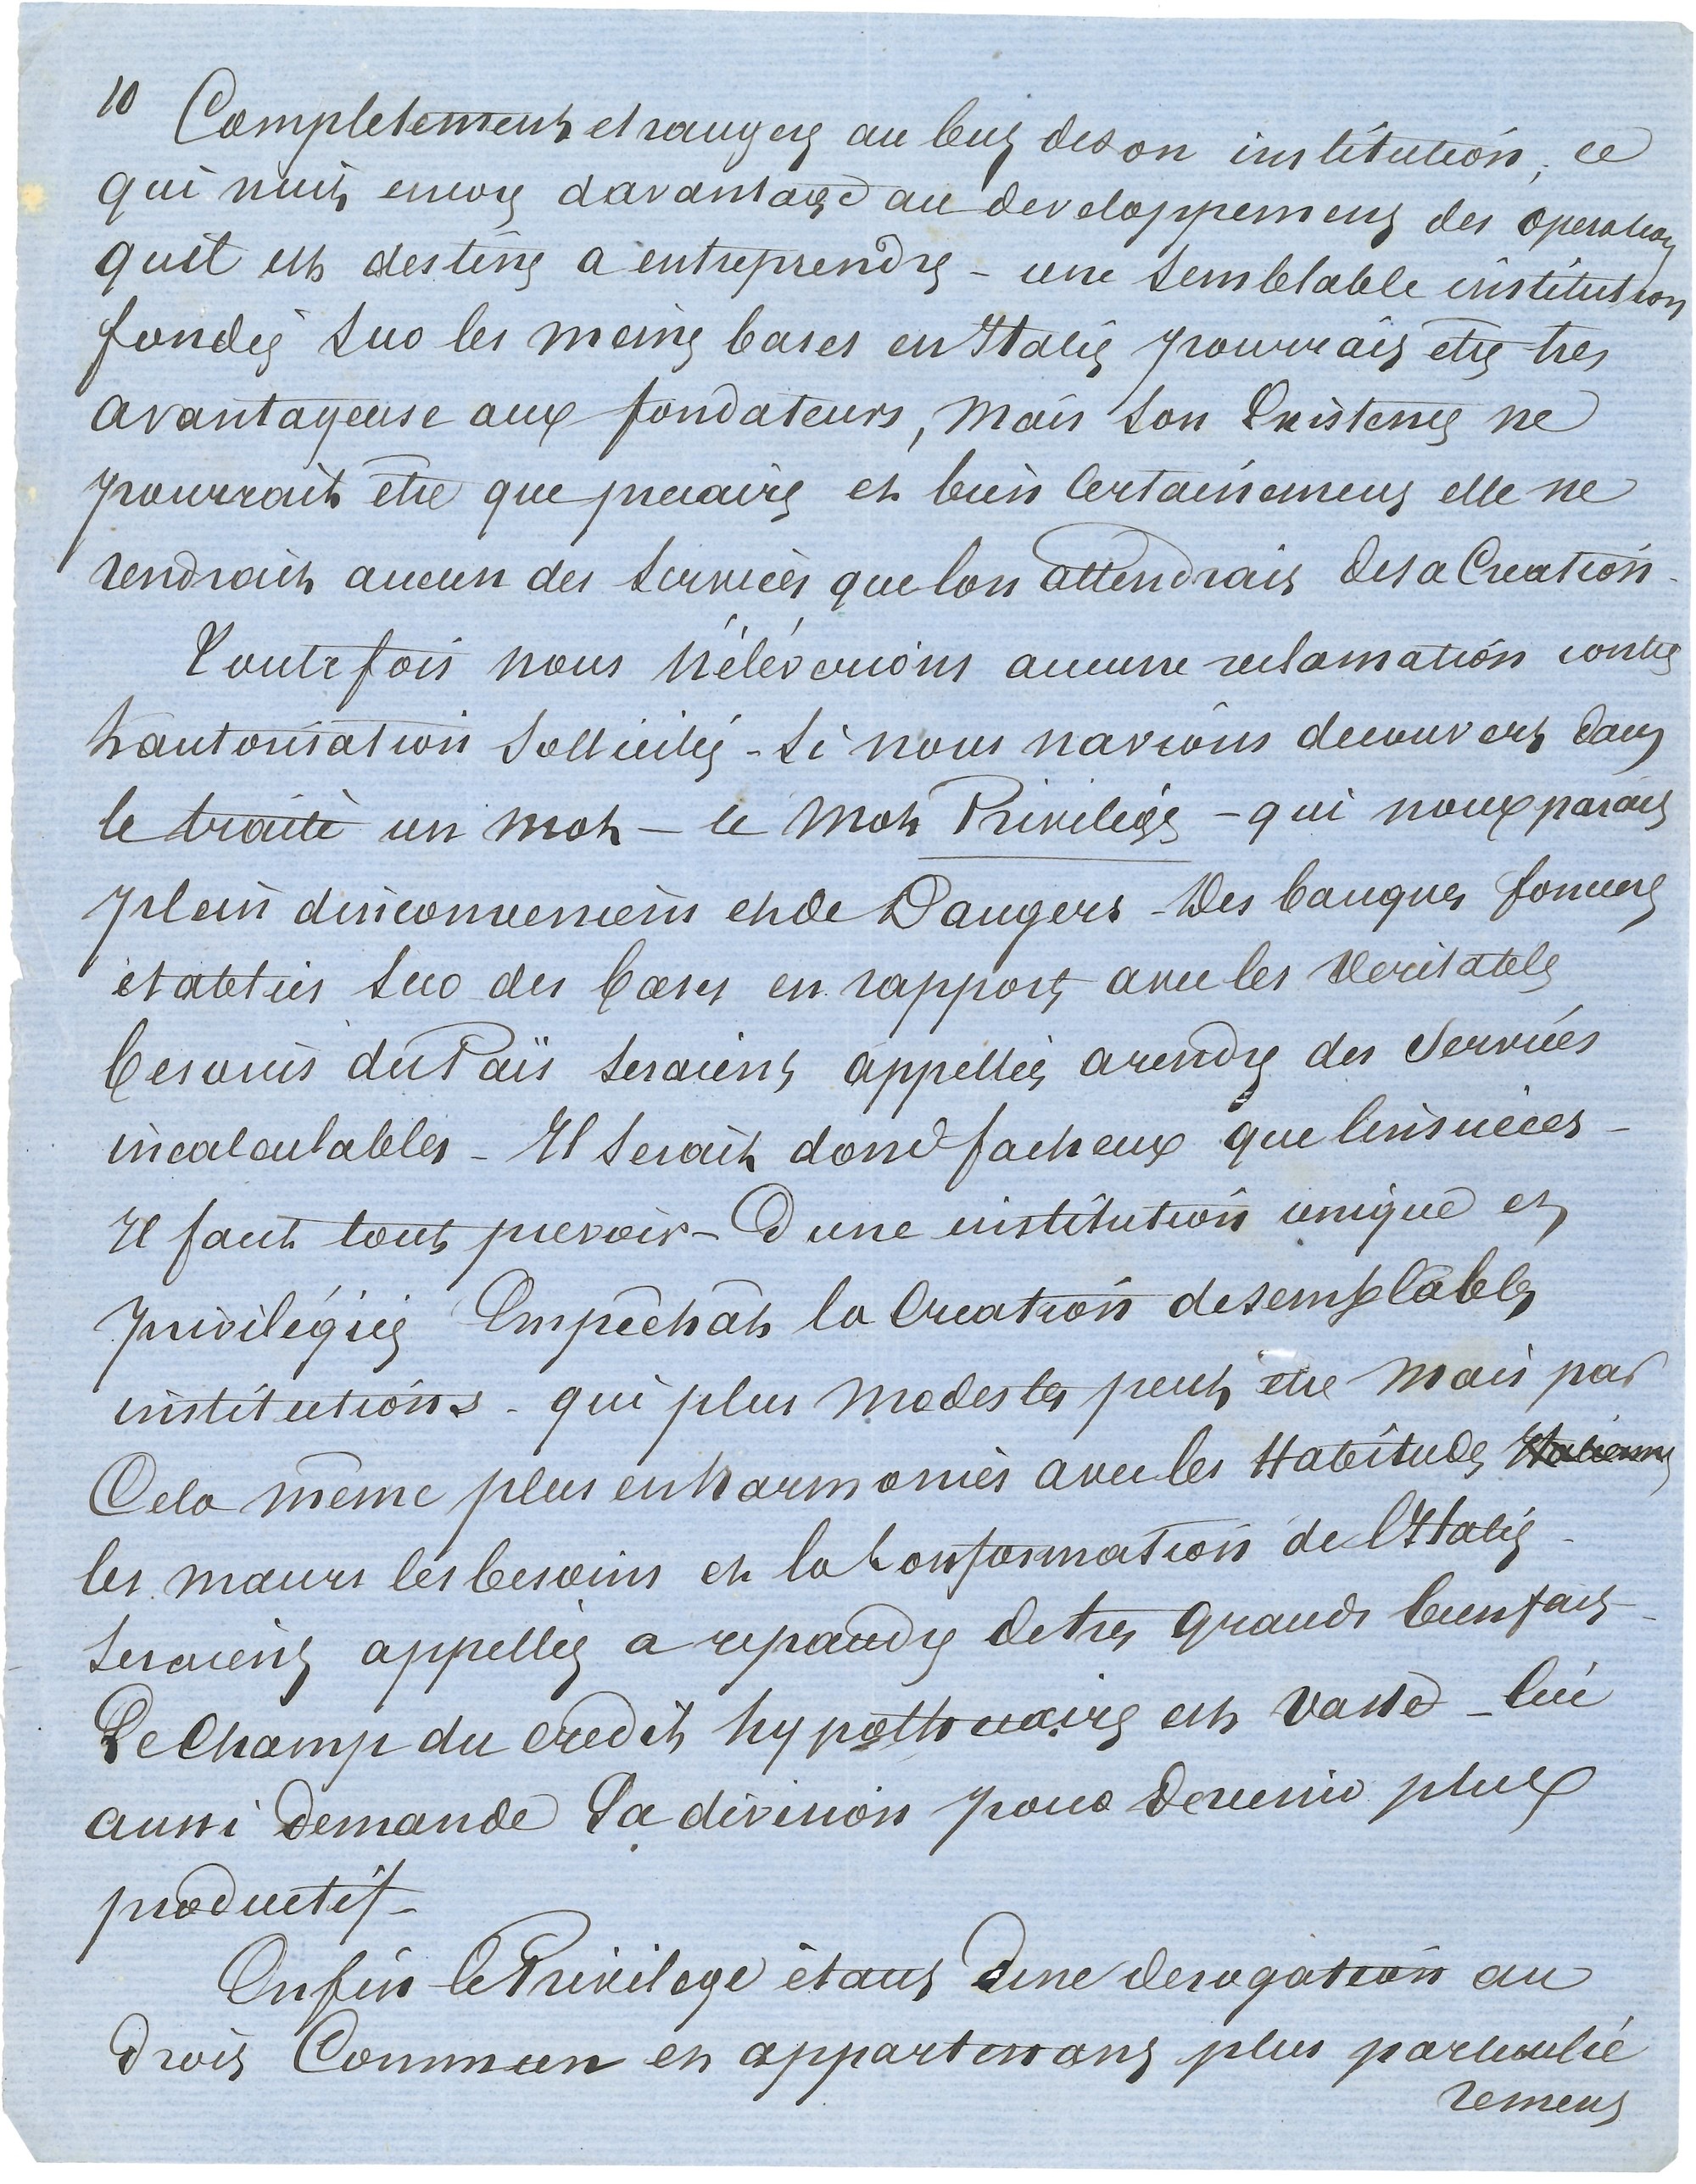 10 Completement etrangers au but de son institution, ce
qui nuit encore davantage au developpement des operations
quil est destiné a entreprendre - une semblable institution
fondée sur les meme bases en Italie pourrait etre tres
avantageuse aux fondateurs, mais son Existence ne
pourrait etre que precaire et bien Certainement elle ne
rendrait aucun des services que lon attendrait de sa Creation -
Toutefois nous n'éléverions aucune reclamation contre
L'autorisation sollicitée - si nous navions decouvert dans
le traité un mot - le mot Privilége - qui nous parait
plein dinconvenients et de Dangers - Des banques foncieres
etablies sur des bases en rapport avec les veritables
besoins du Païs seraient appellées a rendre des services
incalculables - Il serait donc facheux que linsucces -
Il faut tout prevoir - D une institution unique et
privilégiée Empêchât la Creation de semblables
institutions - qui plus modestes peut etre mais par
Cela même plus en harmonies avec les Habitudes Italiennes
les mœurs les besoins et la Conformation de l'Italie -
seraient appellées a repandre de tres grands bienfaits -
Le Champ du credit hypothecaire est vaste - lui
aussi demande La division pour devenir plus
productif -
Enfin le Privilege etant une derogation au
Droit Commun et appartenant plus particulié
rement